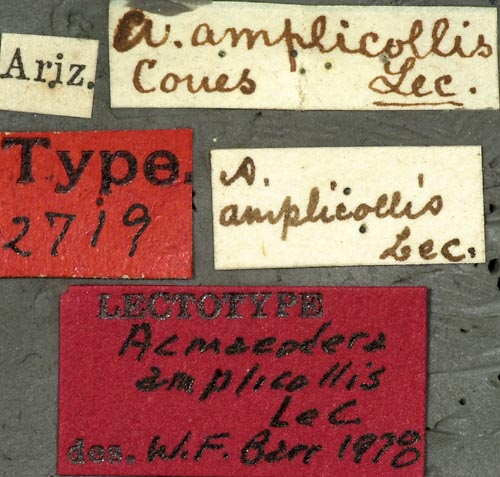 Ariz.
A. amplicollis
Coues Lec.
Type.
2719
A.
amplicollis
Lec.
LECTOTYPE
Acmaeodera
amplicollis
LeC
des. W.F. Barr 1970